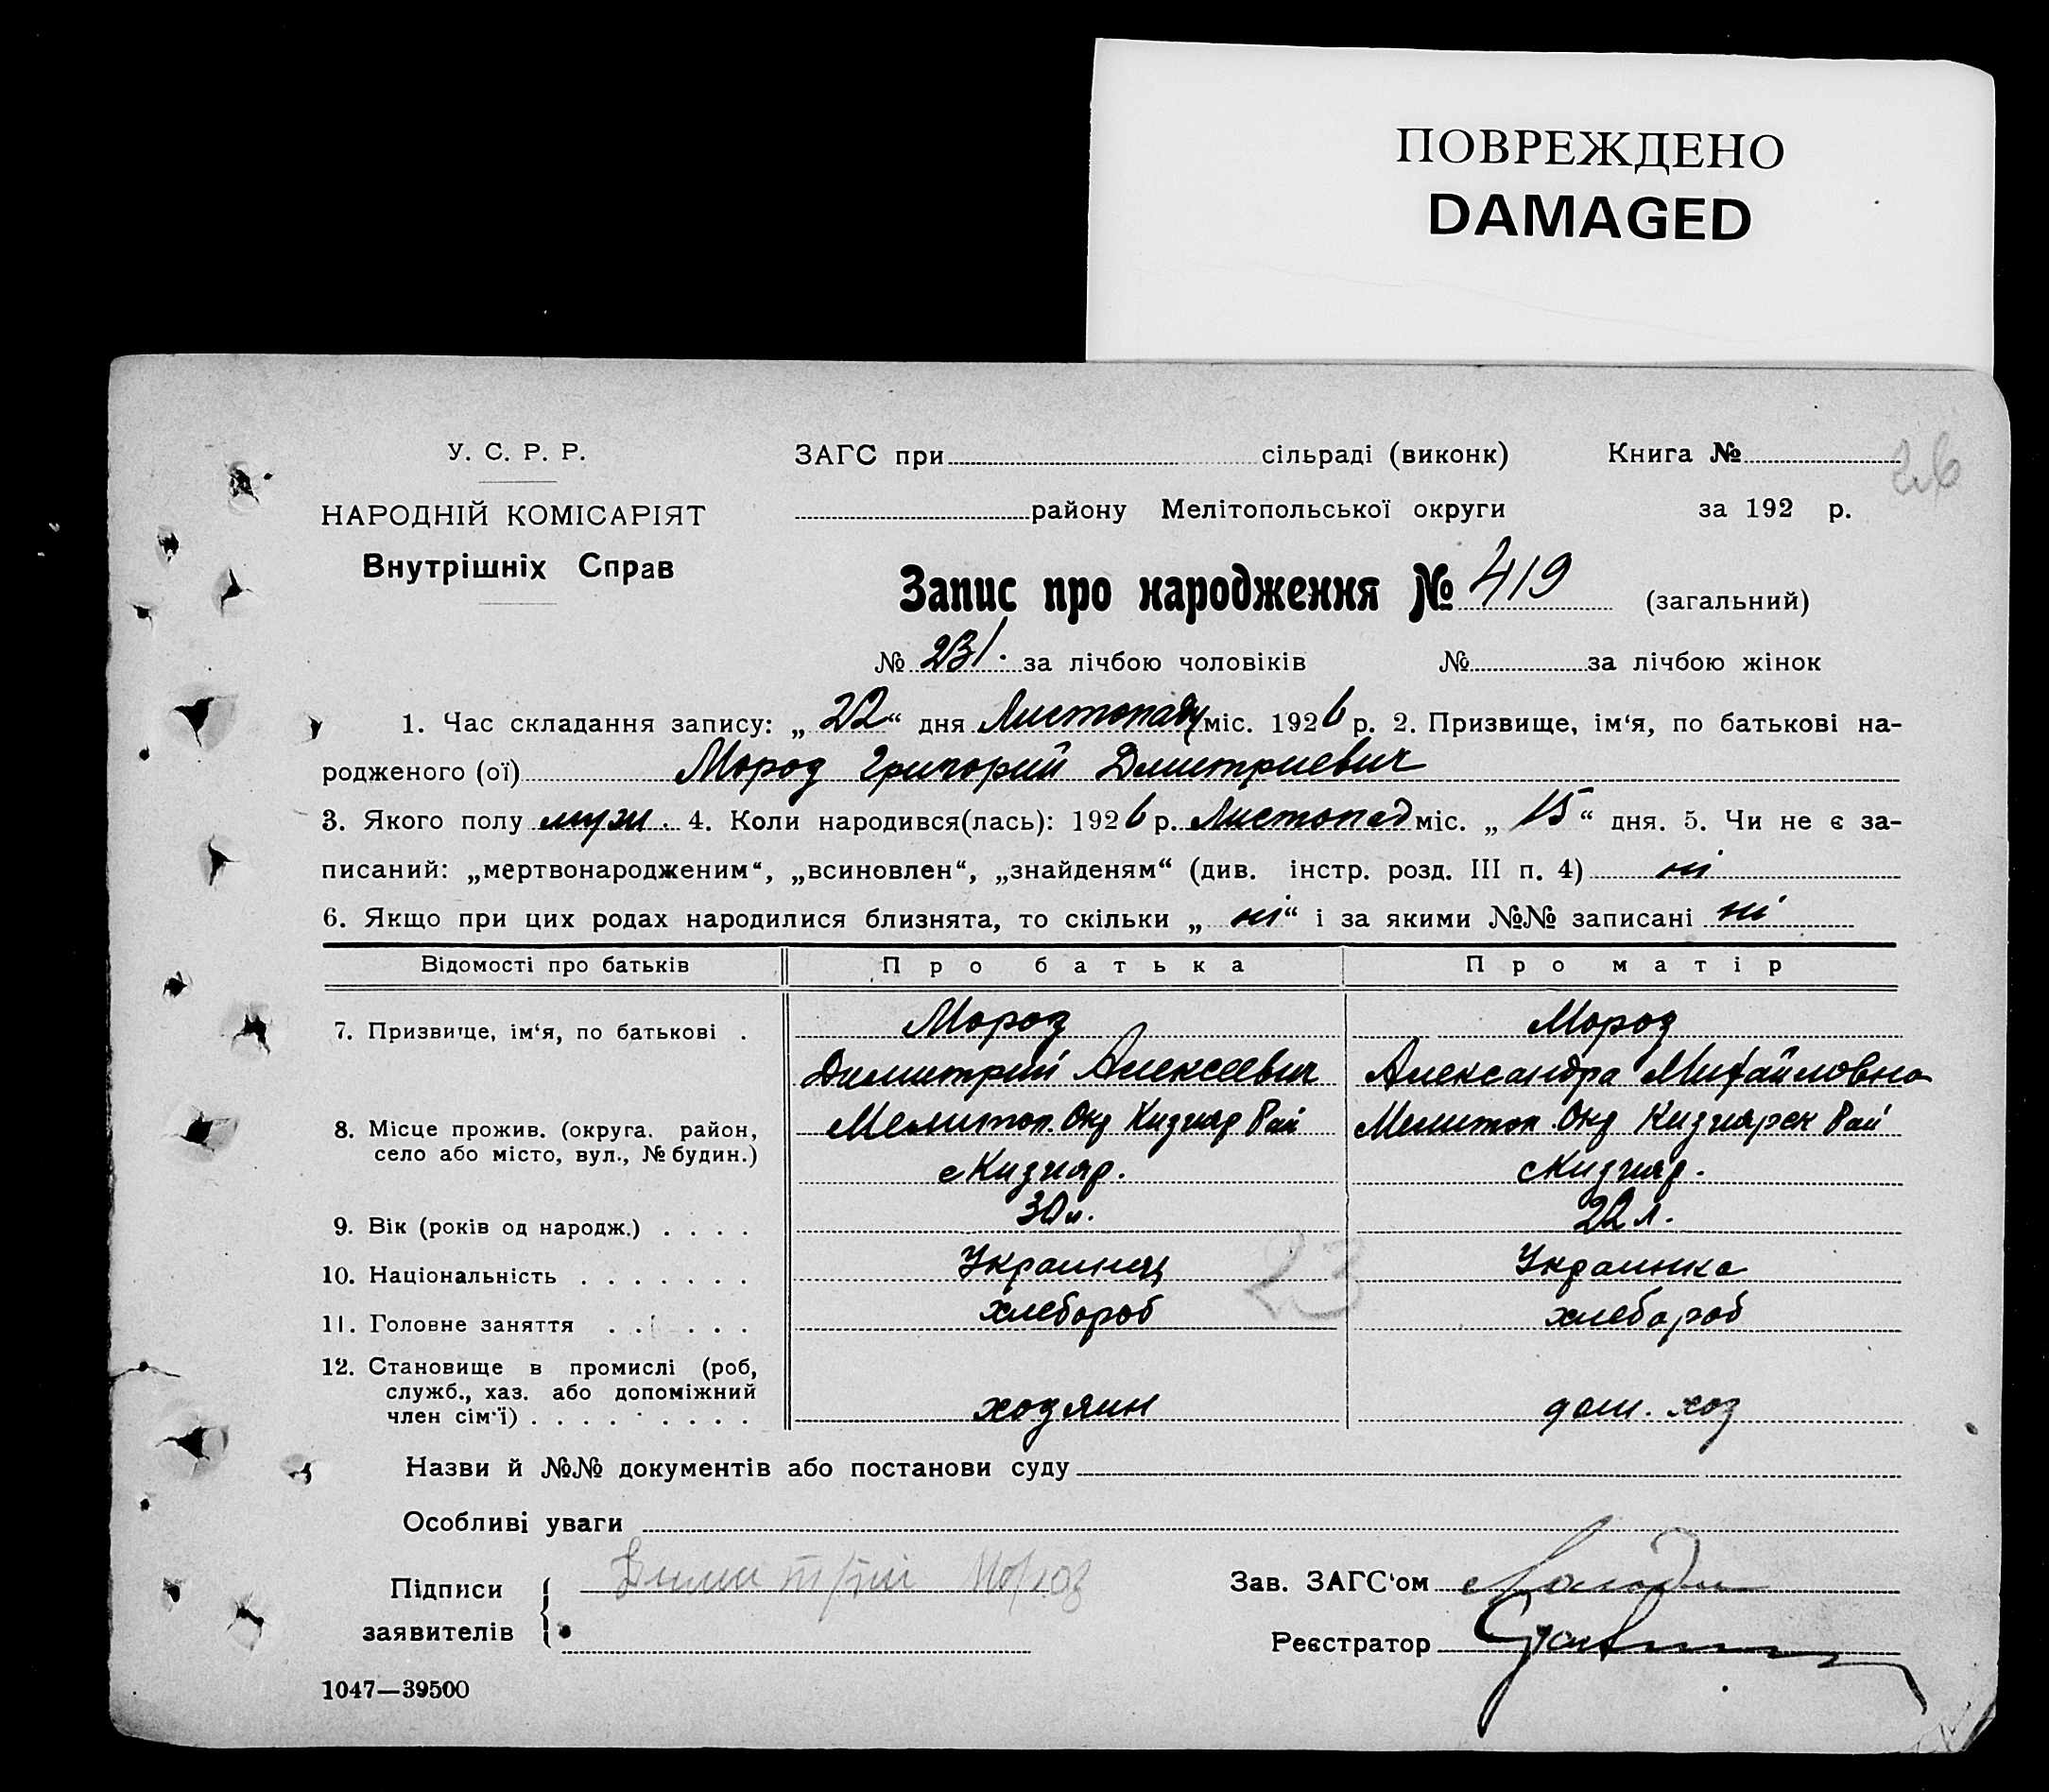 ПОВРЕЖДЕНО
DAMAGED
26
У. С. Р. Р.
НАРОДНІЙ КОМІСАРІЯТ
Внутрішніх Справ
ЗАГС при сільраді (виконк) Книга №
району Мелітопольської округи за 192 р.
Запис про народження № 419 (загальний)
№ 231. за лічбою чоловіків № за лічбою жінок
1. Час складання запису: „ 22 “ дня Листопаду міс. 1926 р. 2. Призвище, ім‘я, по батькові на-
родженого (ої) Мороз Григорий Дмитриевич
3. Якого полу муж. 4. Коли народився(лась): 1926 р. Листопад міс. „ 15 “ дня. 5. Чи не є за-
писаний: „мертвонародженим“, „всиновлен“, „знайденям“ (див. інстр. розд. III п. 4) ні
6. Якщо при цих родах народилися близнята, то скільки „ ні “ і за якими №№ записані ні
Відомості про батьків Про батька Про матір
7. Призвище, ім‘я, по батькові . Мороз Мороз
Димитрий Алексеевич Александра Михайловна
8. Місце прожив. (округа. район, село або місто, вул., № будин.) Мелитоп. Окр Кизияр Рай Мелитоп. Окр Кизиярск Рай
с Кизияр. с Кизияр.
9. Вік (років од народж.) . . . . 30 л. 22 л.
10. Національність . . . . . . . Украинец Украинка
23
11. Головне заняття . . . . . хлебороб хлебороб
12. Становище в промислі (роб,
служб., хаз. або допоміжний
член сім‘ї) . . . . . . . . . хозяин дом. хоз
Назви й №№ документів або постанови суду
Особливі уваги
Підписи Димитрий Мороз Зав. ЗАГС‘ом
заявителів Реєстратор
1047—39500